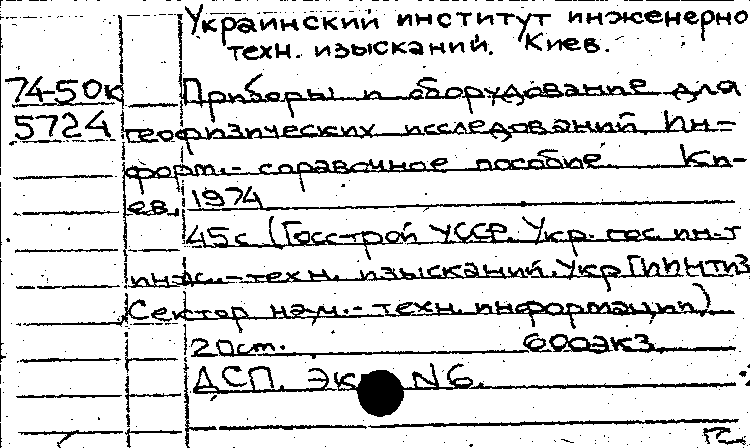 Украинский институт инженерно
техн. изысканий. Киев.
74-50к Приборы и оборудование для
5724 геофизических исследований Ин-
форм.- справочное пособие. Ки-
ев, 1974
45с (Госстрой УССР. Укр. гос ин-т
инж.-техн. изысканий. УкрГИИНТИЗ
Сектор науч.-техн. информации)
20см. 600экз.
ДСП. Экз N6.